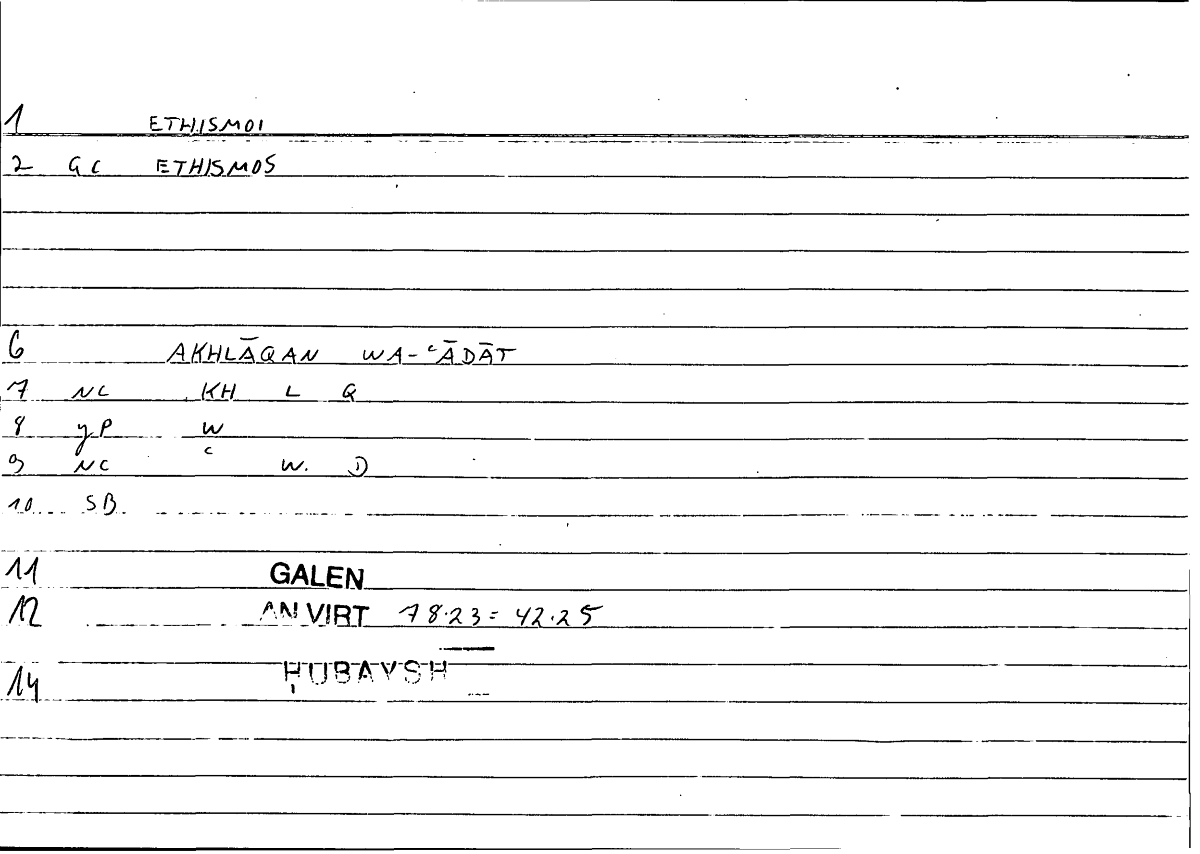 1 ETHISMOI
2 GC ETHISMOS
6 AKHLĀQAN WA-ʿĀDĀT
7 NC KH L Q
8 yP W
9 NC ʿ W. D
10 SB
11 GALEN
12 AN VIRT 78.23 = 42.25
14 ḤUBAYSH